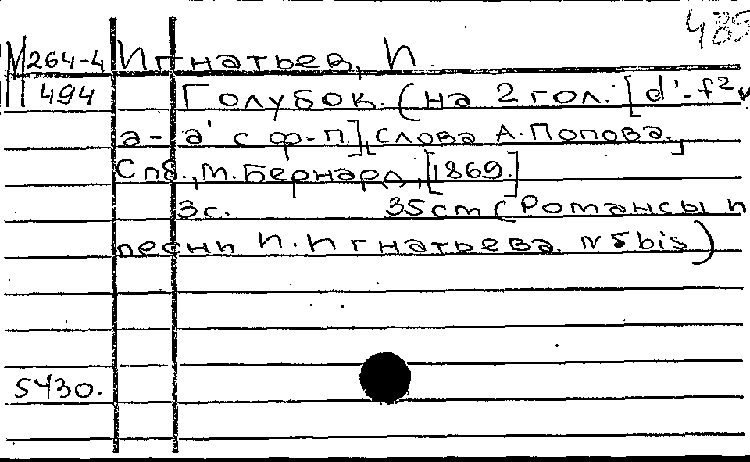 485
М 264-4 Игнатьев, И.
П 494 Голубок. (на 2 гол. [d'-f² и
a-a' с ф-п.], [слова А. Попова.]
Спб., М. Бернард, [1869.]
3с. 35cm (Романсы и
песни И. Игнатьева. N 5bis)
5430.